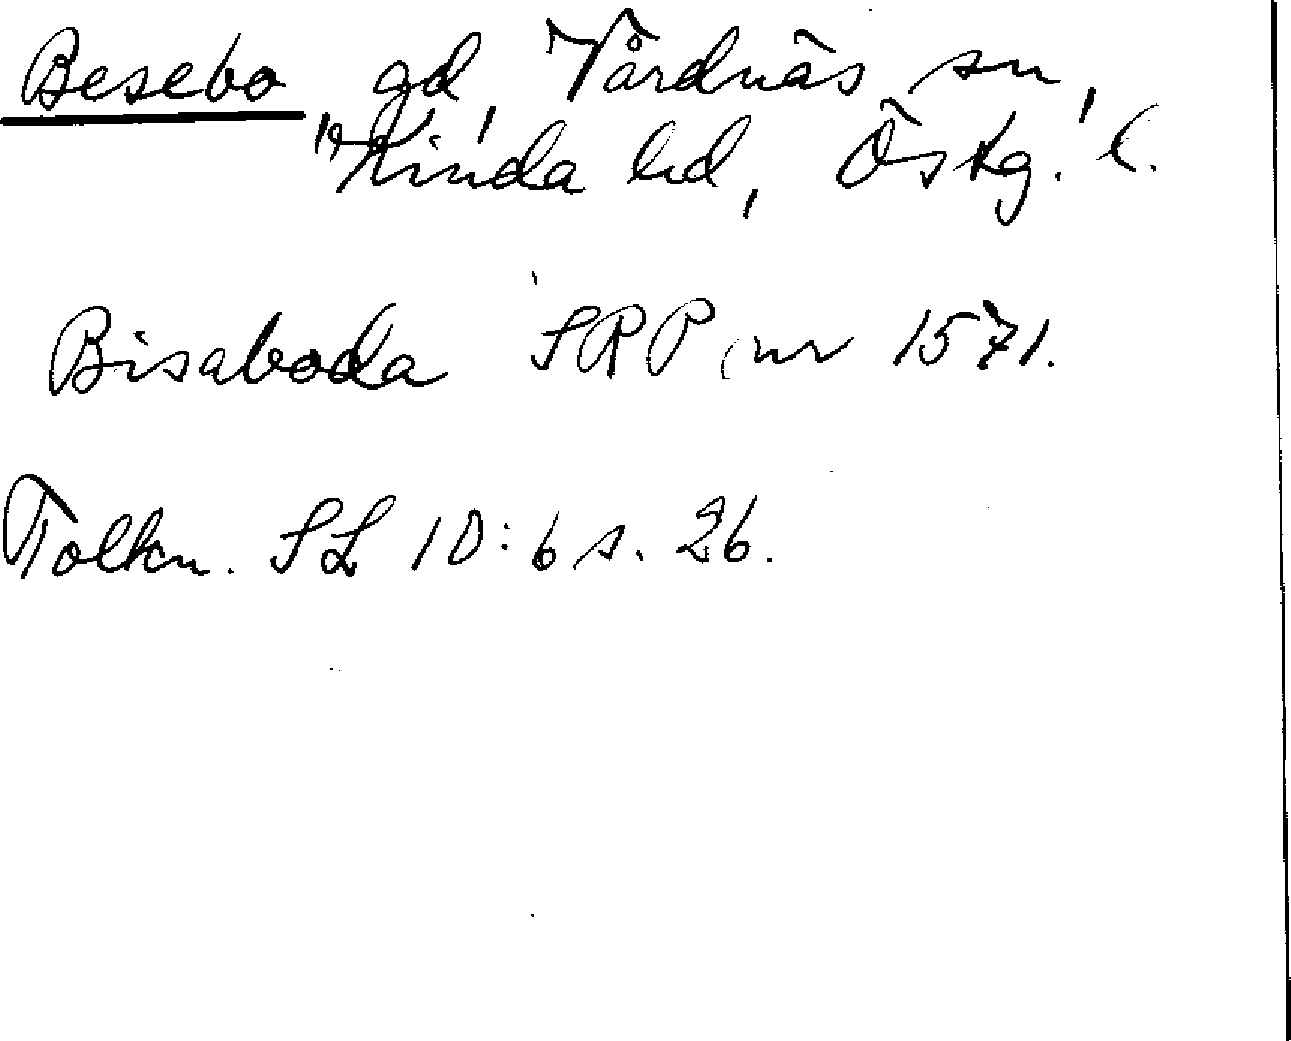 Besebo, gd, Vårdnäs sn,
Kinda hd, Östg. l.
Bisaboda SRP nr 1571.
Tolkn. SL 10:6 s. 26.